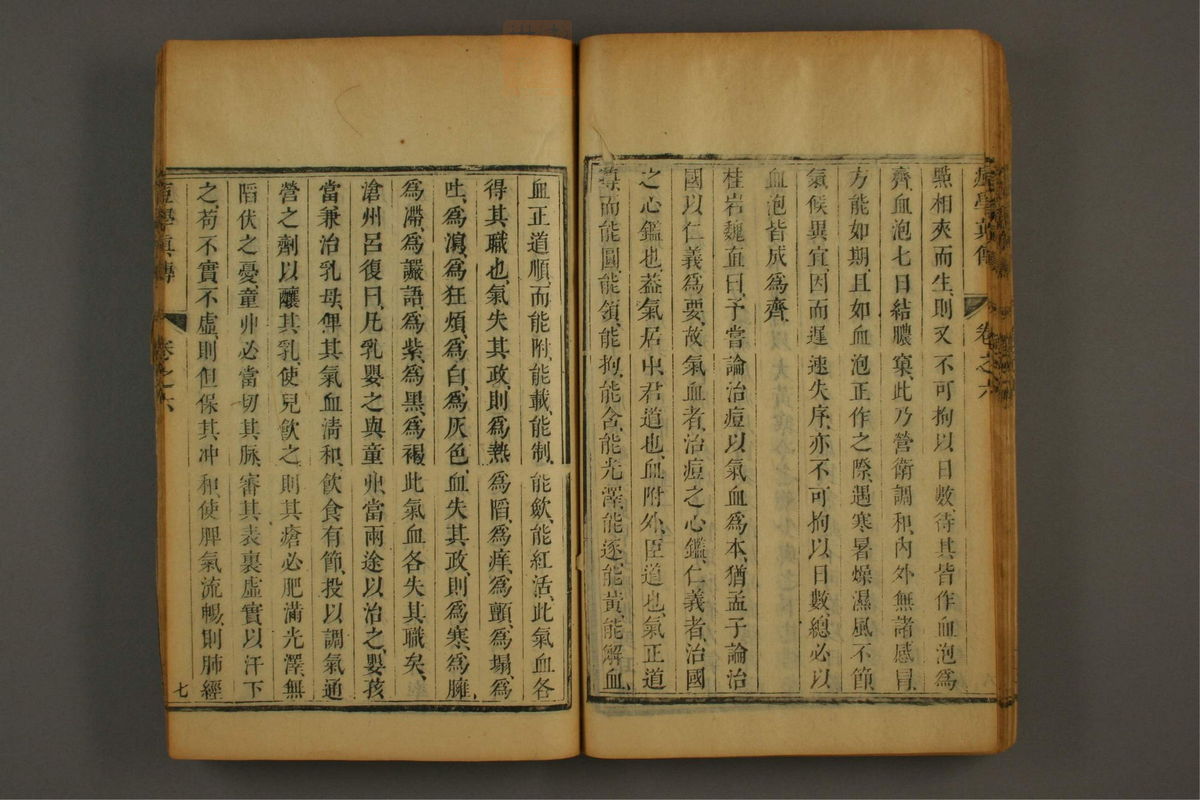 痘學真傳　卷之六
點相夾而生則又不可拘以日數待其皆作血泡爲
齊血泡七日結膿窠此乃營衛調和內外無諸感冒
方能如期且如血泡正作之際遇寒暑燥濕風不節
氣候異宜因而遲速失序亦不可拘以日數總必以
血泡皆成爲齊
桂岩魏直曰予嘗論治痘以氣血爲本猶孟子論治
國以仁義爲要故氣血者治痘之心鑑仁義者治國
之心鑑也葢氣居中君道也血附外臣道也氣正道
尊而能圓能領能拘能含能光澤能逐能黃能解血
血正道順而能附能載能制能歛能紅活此氣血各
得其職也氣失其政則爲熱爲陷爲痒爲顫爲塌爲
吐爲瀉爲狂煩爲白爲灰色血失其政則爲寒爲臃
爲滯爲讝語爲紫爲黑爲褐此氣血各失其職矣
滄州呂復曰凡乳嬰之與童丱當兩途以治之嬰孩
當兼治乳母俾其氣血清和飲食有節投以調氣通
營之劑以釀其乳使兒飲之則其瘡必肥滿光澤無
陷伏之憂童丱必當切其脉審其表裏虛實以汗下
之苟不實不虛則但保其冲和使脾氣流暢則肺經
痘學真傳　卷之六　七